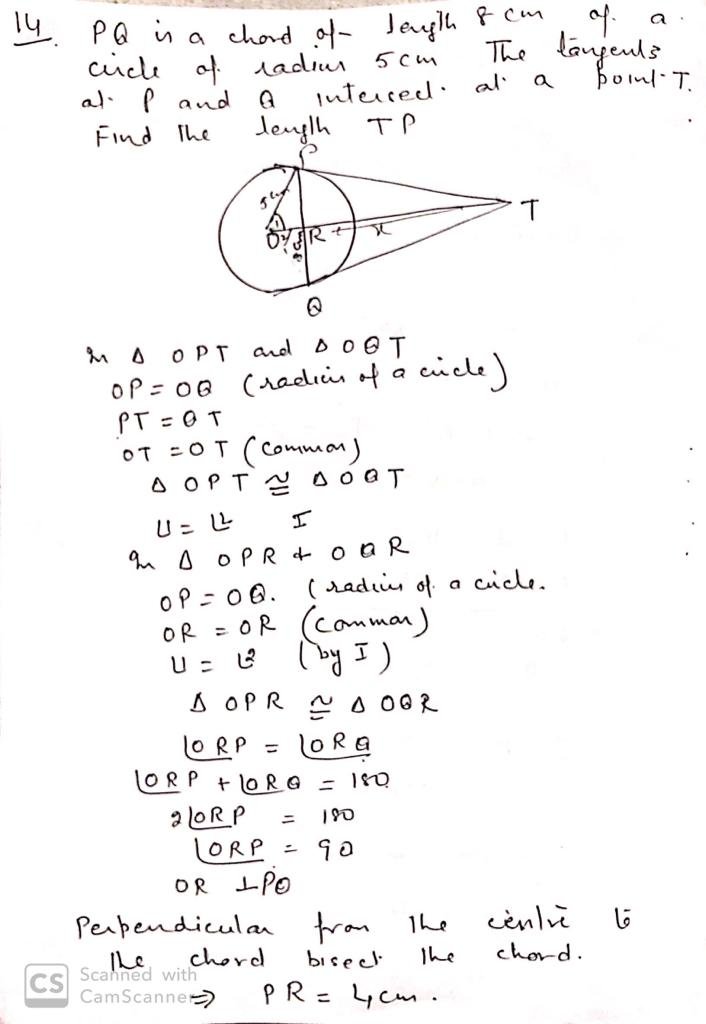 14. PQ is a chord of length 8 cm of a
circle of radius 5 cm The tangents
at P and Q intersect at a point T.
Find The length TP
P
5 cm
T
O R x
Q
In Δ OPT and Δ OQT
OP = OQ (radius of a circle)
PT = QT
OT = OT (Common)
Δ OPT ≅ Δ OQT
∠1 = ∠2 I
In Δ OPR & OQR
OP = OQ. (radius of a circle.
OR = OR (Common)
∠1 = ∠2 (by I)
Δ OPR ≅ Δ OQR
∠ORP = ∠ORQ
∠ORP + ∠ORQ = 180
2∠ORP = 180
∠ORP = 90
OR ⊥ PQ
Perpendicular from The centre to
The chord bisect The chord.
⇒ PR = 4 cm.
CS Scanned with
CamScanner